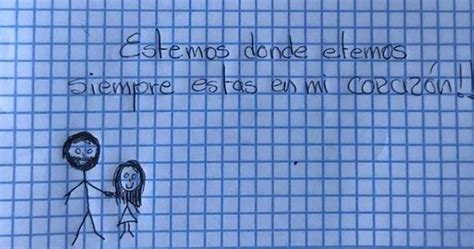 Estemos donde etemos
siempre estas en mi corazón!!